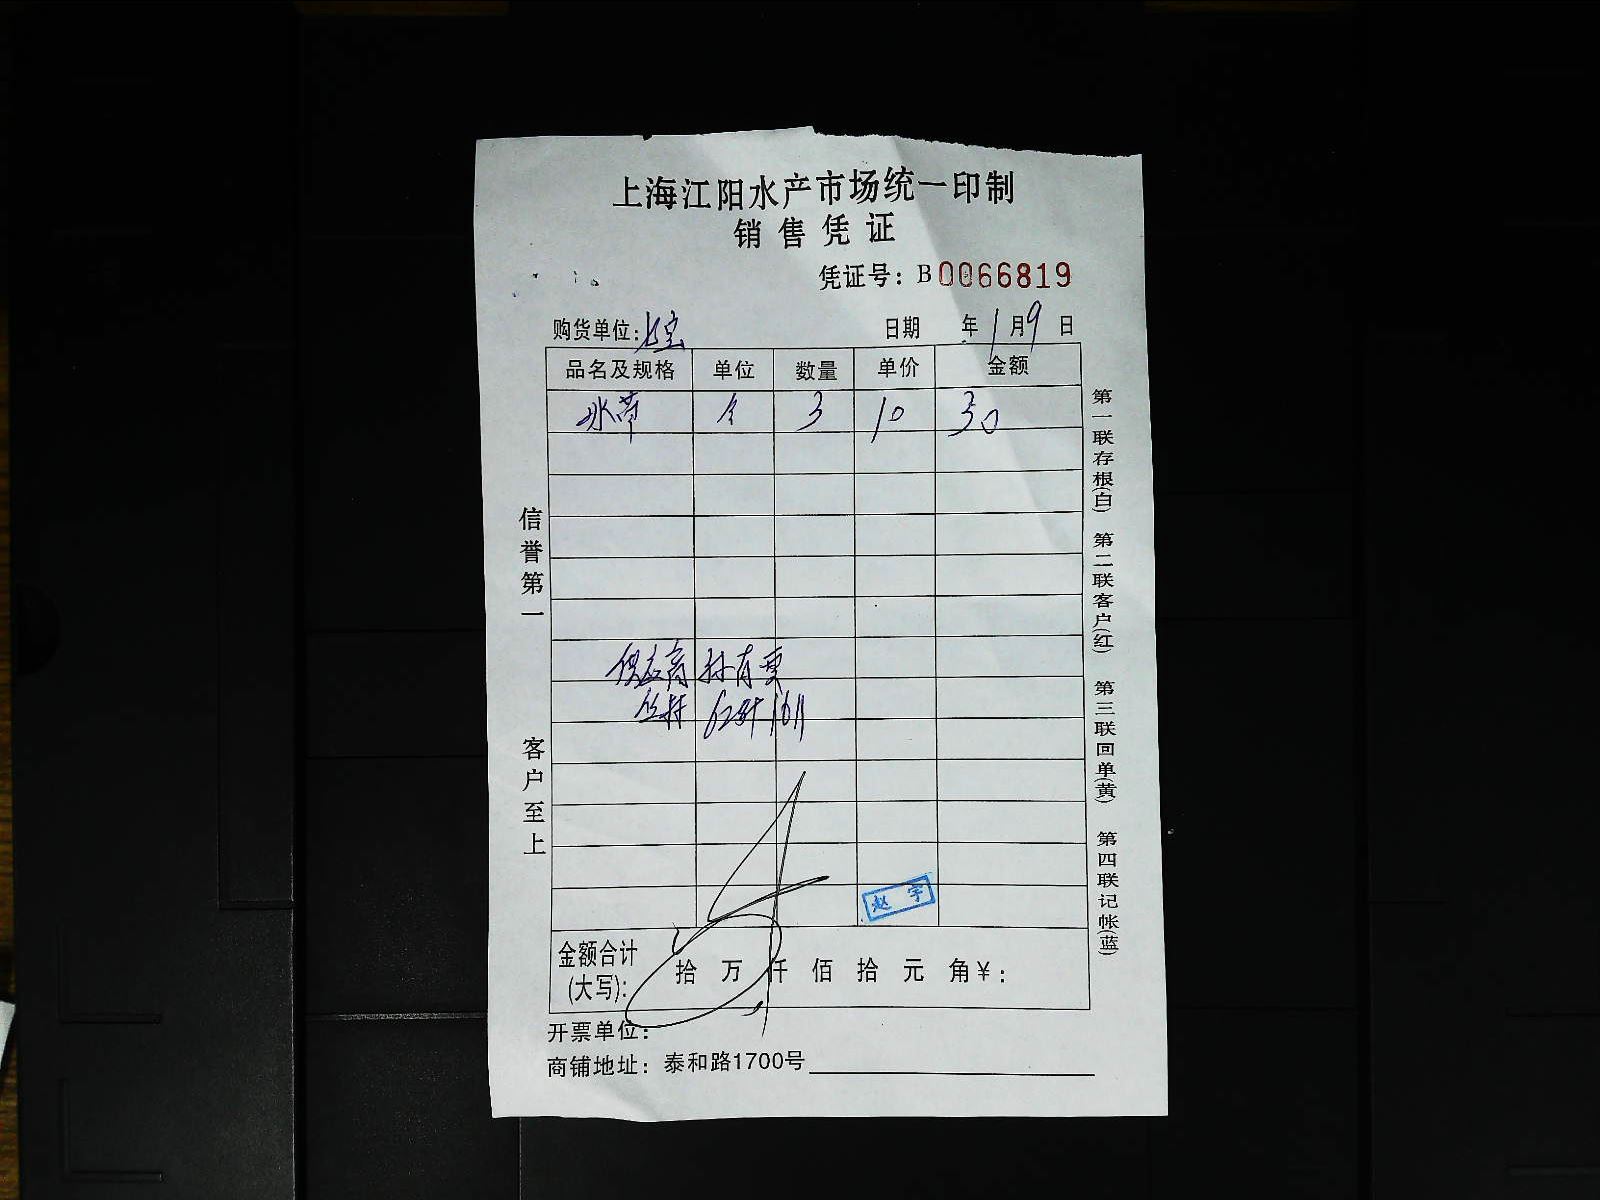 上海江阳水产市场统一印制
销售凭证
凭证号：B0066819
购货单位：七宝 日期 年1月9日
品名及规格 单位 数量 单价 金额
个 3 10 30
信誉第一
客户至上
供应商 孙有更
赵宇
金额合计(大写)： 拾 万 仟 佰 拾 元 角￥：
开票单位：
商铺地址：泰和路1700号
第一联存根(白) 第二联客户(红) 第三联回单(黄) 第四联记帐(蓝)